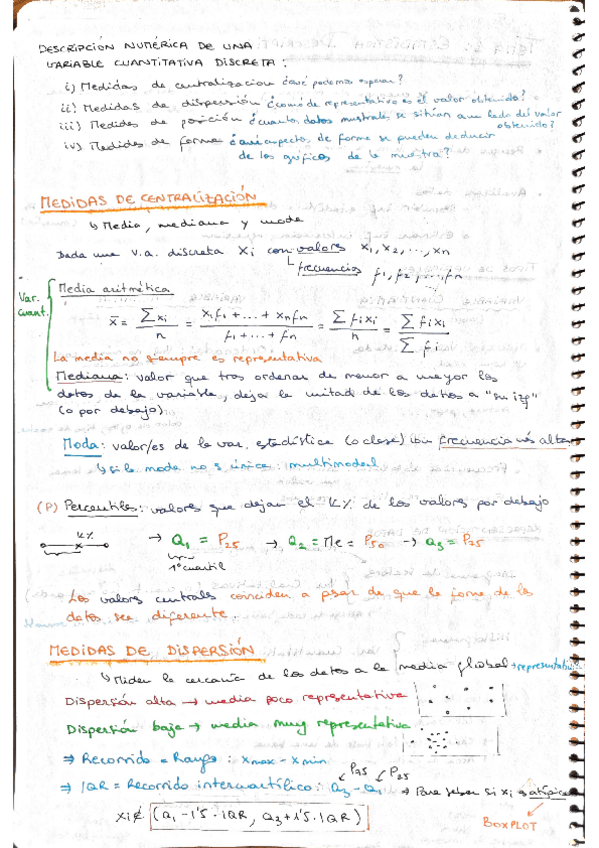 DESCRIPCIÓN NUMÉRICA DE UNA
VARIABLE CUANTITATIVA DISCRETA:
i) Medidas de centralización ¿qué podemos esperar?
ii) Medidas de dispersión ¿cómo de representativo es el valor obtenido?
iii) Medidas de posición ¿cuantos datos muestrales se sitúan a un lado del valor obtenido?
iv) Medidas de forma ¿qué aspectos de forma se pueden deducir
de los gráficos de la muestra?
MEDIDAS DE CENTRALIZACIÓN
↳ Media, mediana y moda
Dada una v.a. discreta Xi con valores x1, x2, ..., xn
↳ frecuencias f1, f2, ..., fn
Var. Cuant.
Media aritmética
x̄ = Σxi / n = (x1f1 + ... + xnfn) / (f1 + ... + fn) = Σfixi / n = Σfixi / Σfi
La media no siempre es representativa
Mediana: valor que tras ordenar de menor a mayor los
datos de la variable, deja la mitad de los datos a "su izq"
(o por debajo)
Moda: valor/es de la var. estadística (o clase) con frecuencia más alta
↳ si la moda no es única: multimodal
(P) Percentiles: valores que dejan el K% de los valores por debajo
K%
→ Q1 = P25 → Q2 = Me = P50 → Q3 = P75
1º cuartil
Los valores centrales coinciden a pesar de que la forma de los
datos sea diferente.
MEDIDAS DE DISPERSIÓN
↳ Miden la cercanía de los datos a la media global
Dispersión alta → media poco representativa
Dispersión baja → media muy representativa
⇒ Recorrido = Rango: xmax - xmin
P75 P25
⇒ IQR = Recorrido intercuartílico: Q3 - Q1 → Para saber si xi es atípico
xi ∉ (Q1 - 1'5·IQR, Q3 + 1'5·IQR)
BOXPLOT